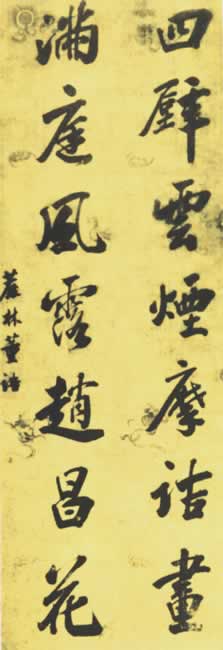 四壁雲煙摩詰畫
滿庭風露趙昌花
蔗林董誥